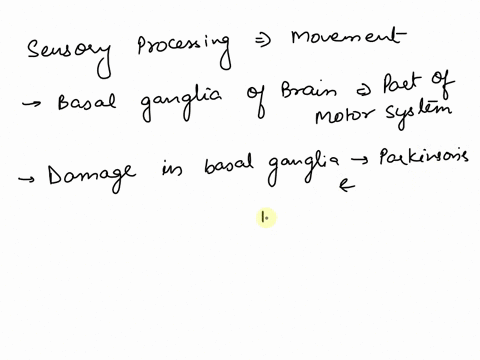 Sensory Processing ⇒ Movement
→ Basal ganglia of Brain ⇒ Part of
Motor System
→ Damage in basal ganglia → Parkinsons
←
1.